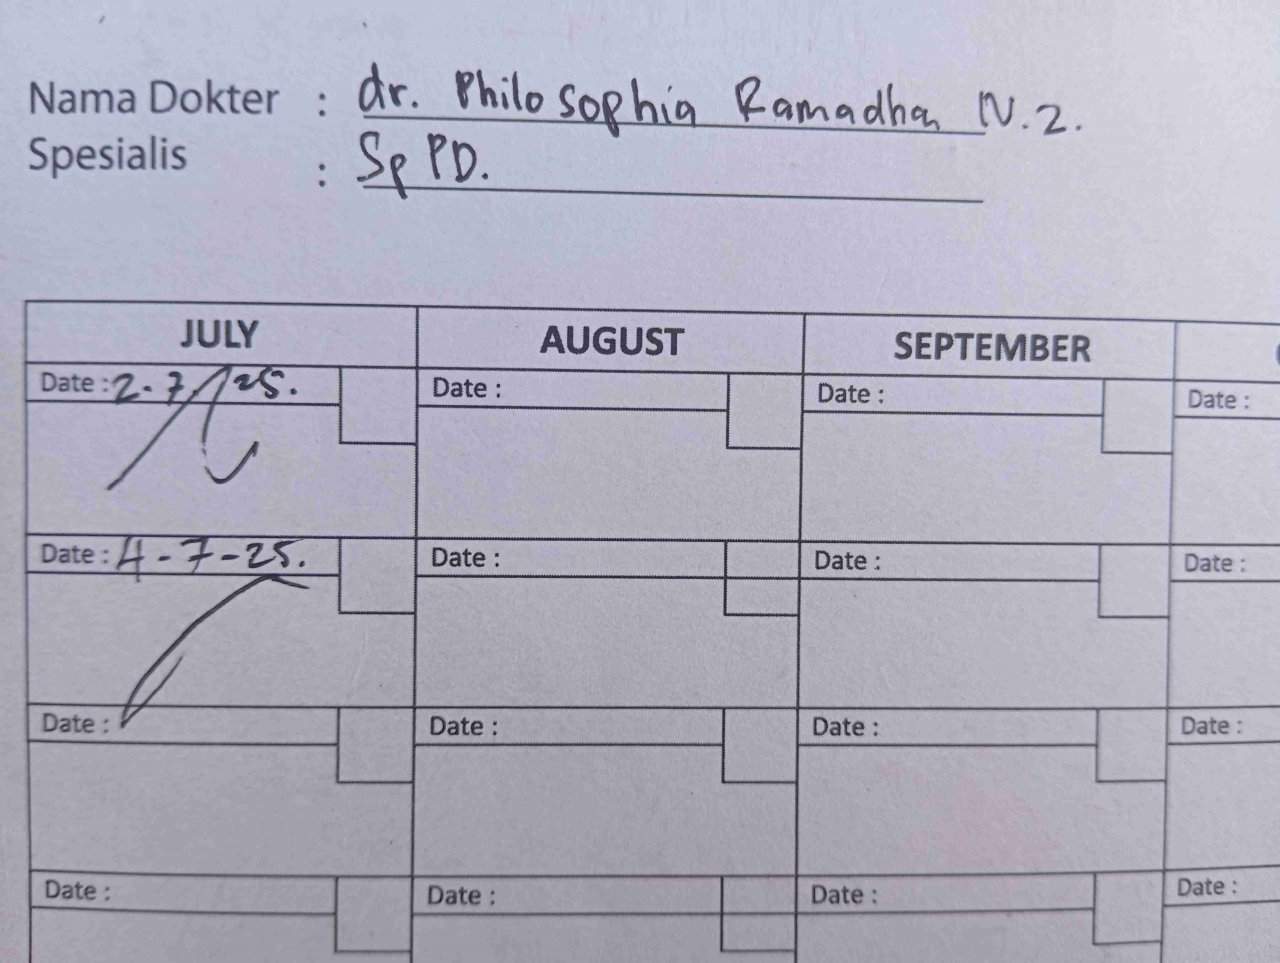 Nama Dokter : dr. Philosophia Ramadhan N.Z.
Spesialis : Sp PD.
JULY AUGUST SEPTEMBER
Date : 2-7-25. Date : Date : Date :
Date : 4-7-25. Date : Date : Date :
Date : Date : Date : Date :
Date : Date : Date : Date :